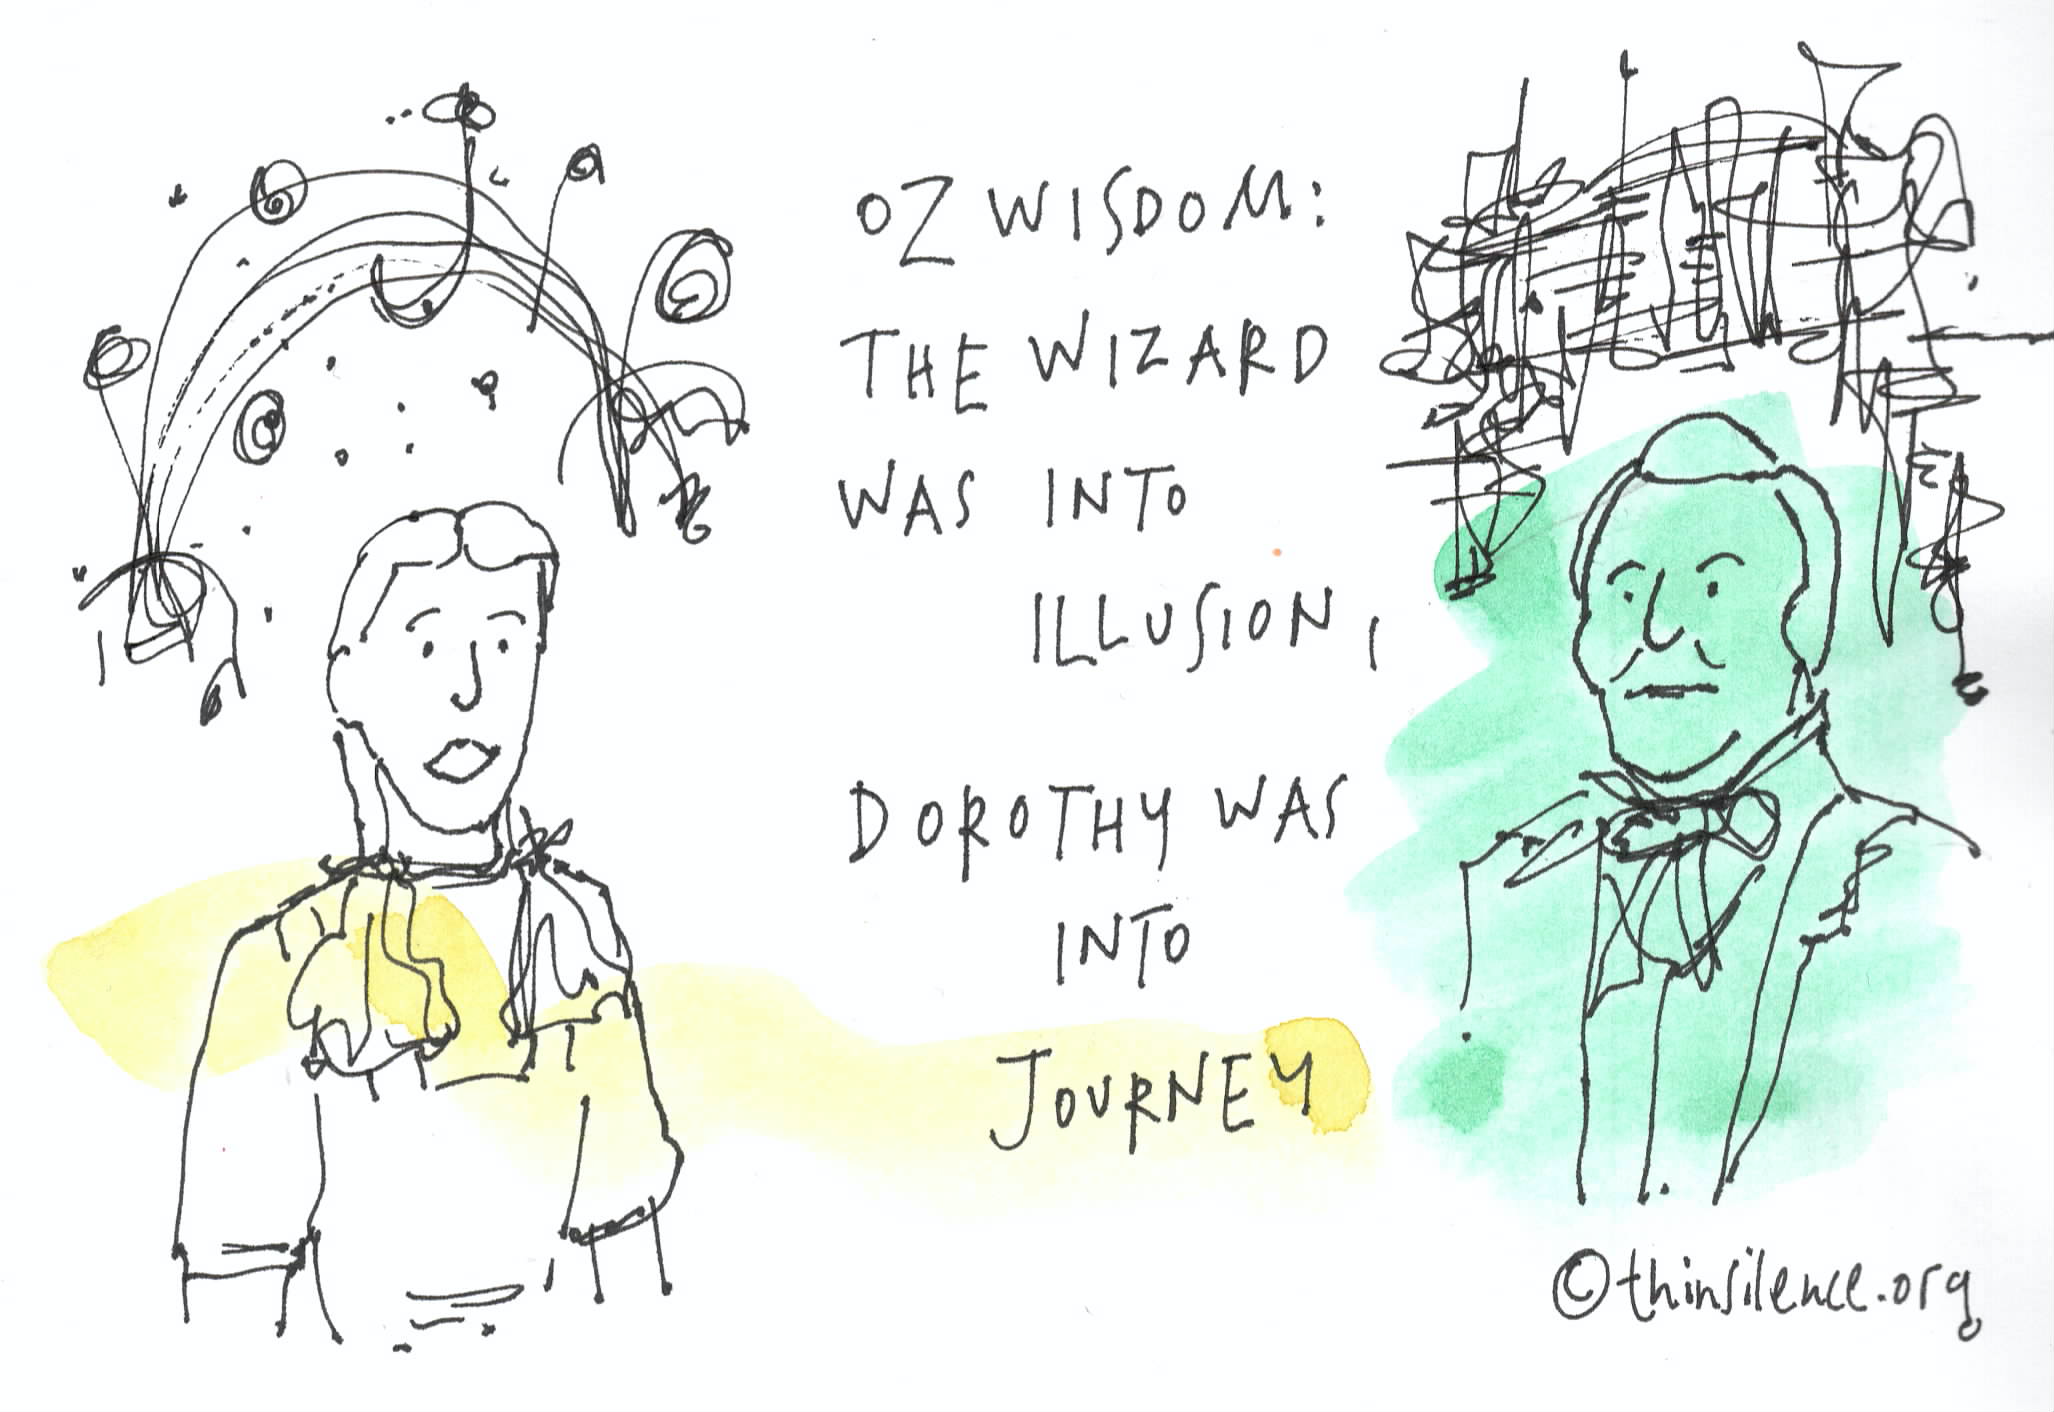 OZ WISDOM:
THE WIZARD
WAS INTO
ILLUSION,
DOROTHY WAS
INTO
JOURNEY
©thinsilence.org